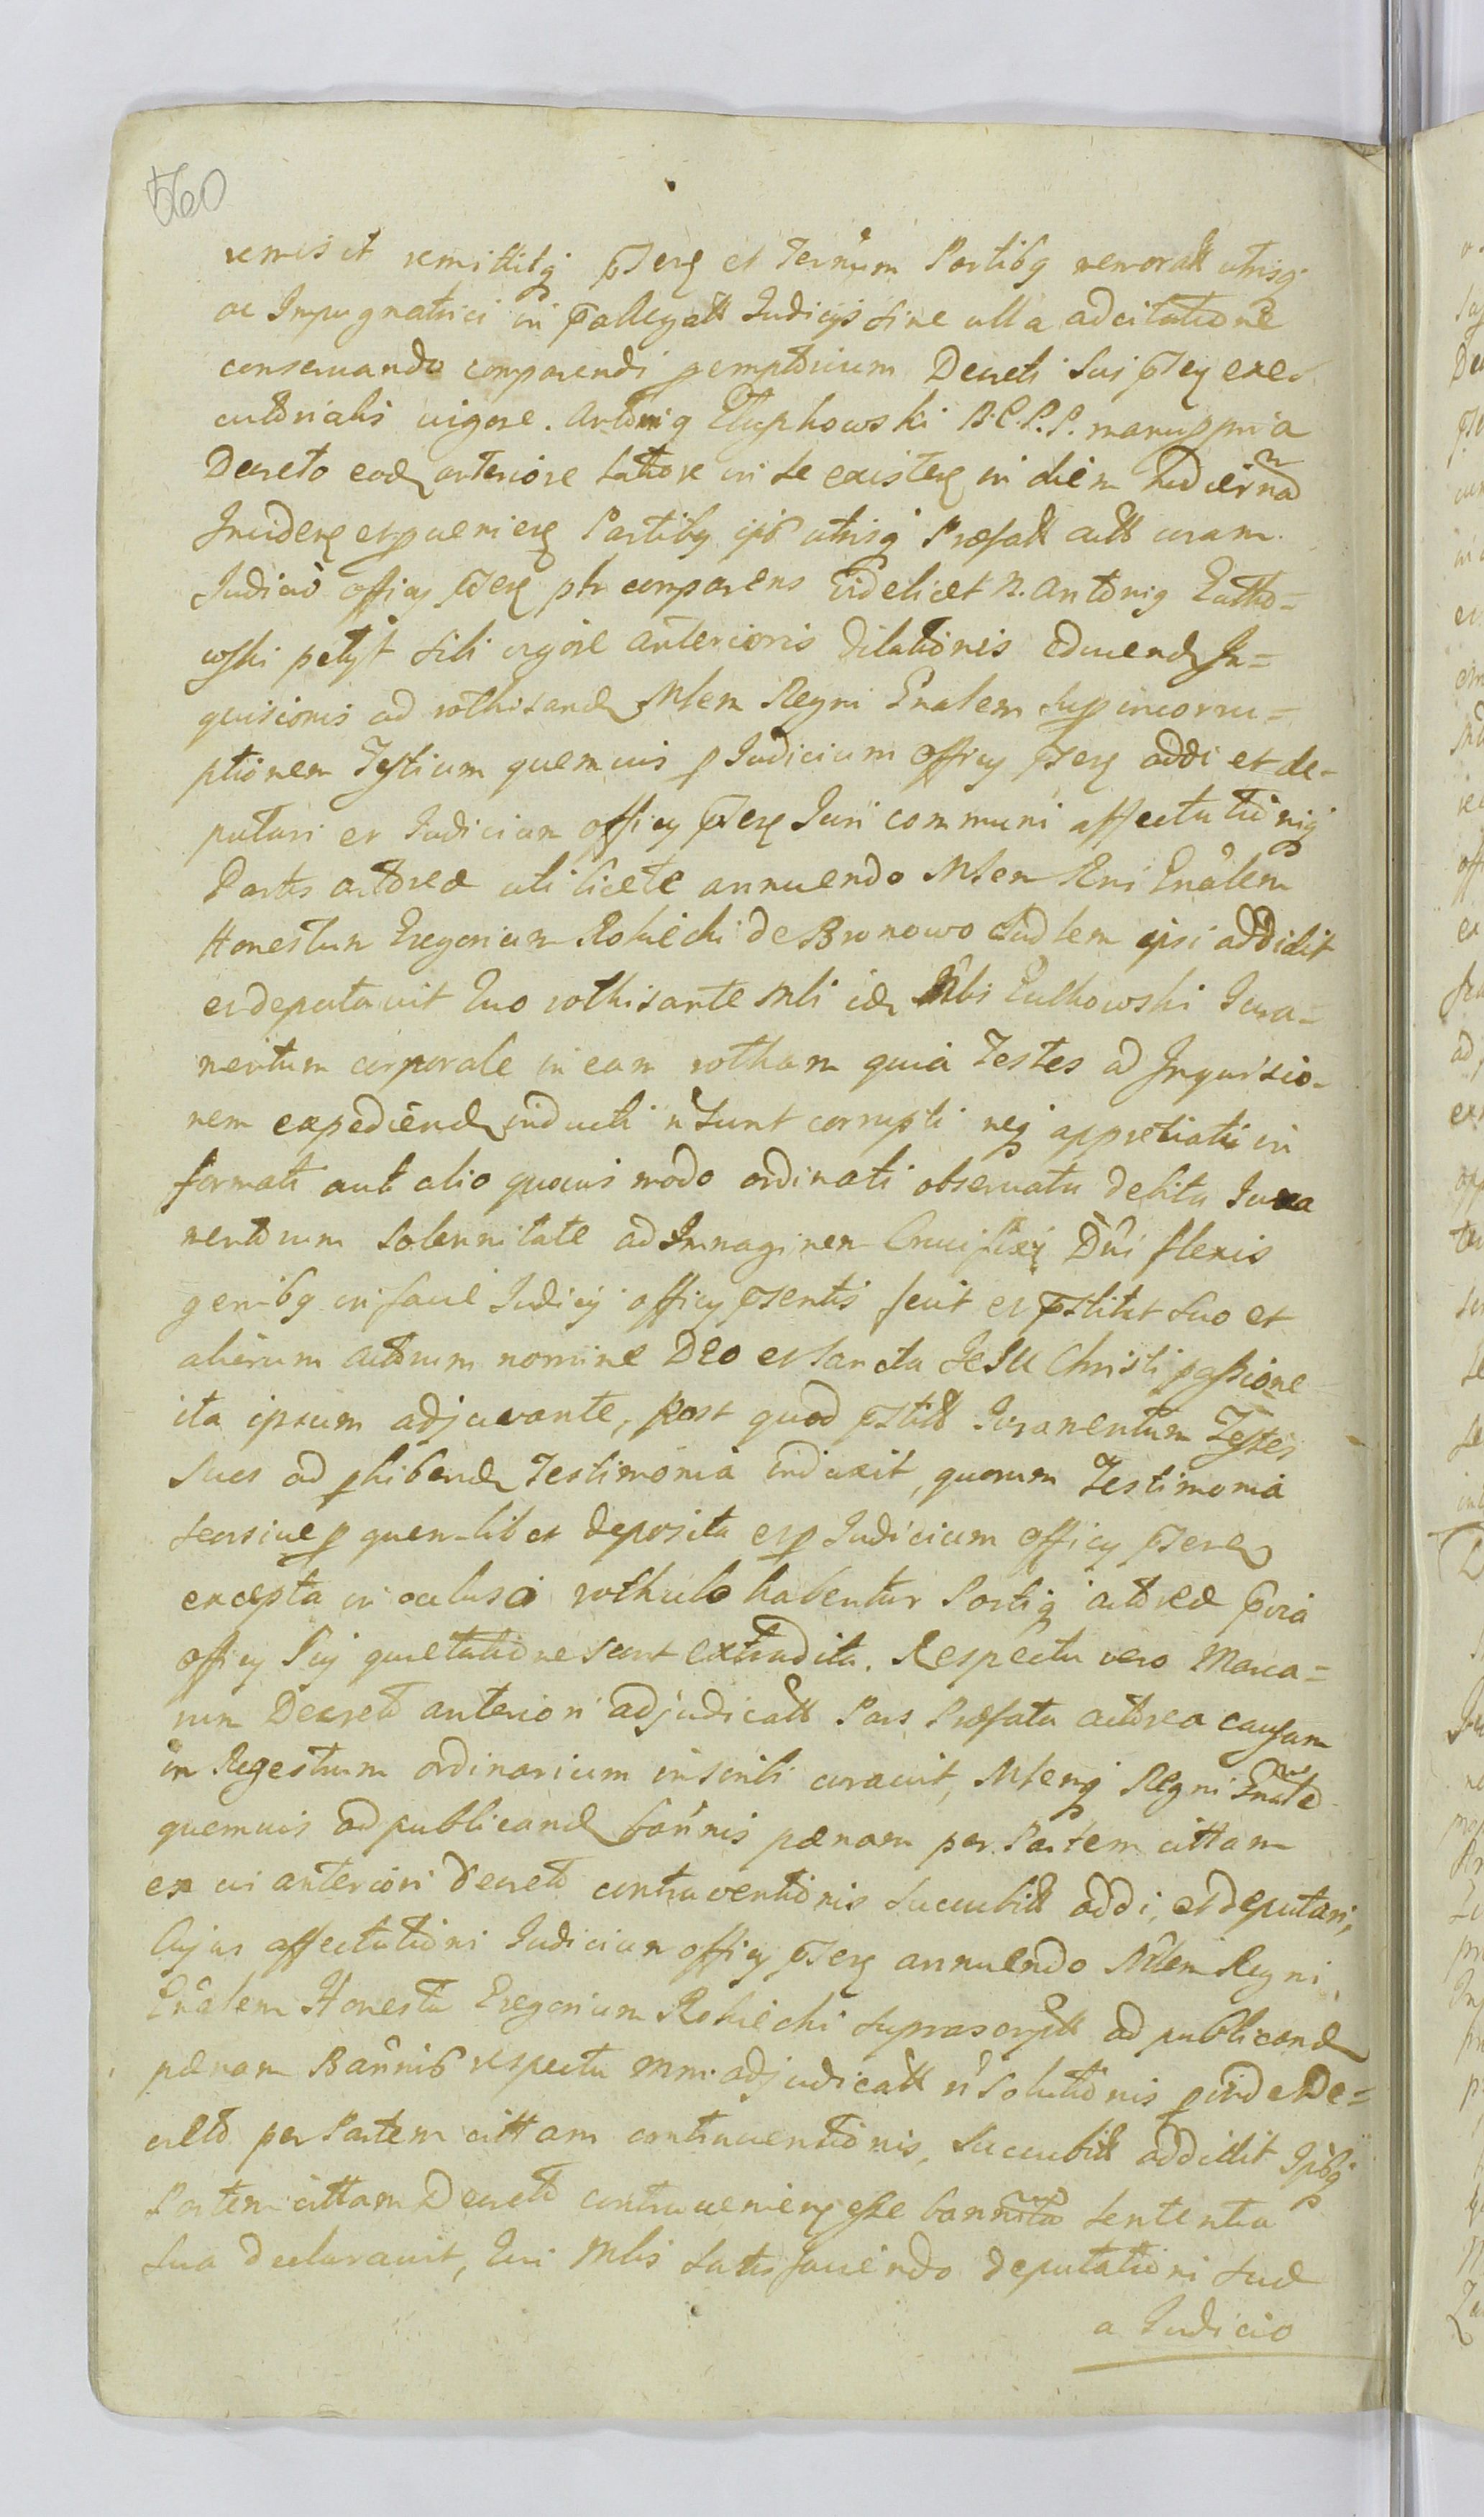 560
remisit remittitq pserq et Termum Partibq memoratt utrisq
ac Impugnatrici in pallegatt Judicijs sine ulla adcitatione
conservando comparendi pemptorium Decreti sui psey exe
cutorialis vigore. Antonig Słupkowski B.C.P.P. manuppria
Decreto eodq anteriore latiore in se existerq in diem
Inciderq et pvenierq Partibq ipb utrisq Præfatt actt coram
Judicio officy pserq phr comparens Videlicet N. Antonig Gutko=
wski petyt sibi vigore anterioris dilationis educendq In=
quisicionis ad rothisandq Mlem Regni Gnalem sup incorru=
ptionem Testium quemvis p Judicium officy pserq addi et de=
putari et Judicium officy pserq Juri communi affectationiq
Partis actoreæ uti licitæ annuendo Mlem Rni Gnalem
Honestum Gregorium Rokicki de Bronowo ipsi addidit
et deputavit Quo rothisante Mli idq Nblis Gutkowski Jura=
mentum corporale in eam rotham quia Testes ad Inquisicio=
nem expediendq inducti n sunt corrupti neq appretiati in
formati aut alio quovis modo ordinati observata debita Jura
mentorum solennitate ad Immaginem Crucifixi Dni flexis
genibq in facie Judicij officy psentis fecit et pstitit suo et
aliorum actorum nomine Deo et sancta JeSu Christi passione
ita ipsum adjuvante, post quod pstitt Juramentum Testes
suos ad phibendq Testimonia induxit, quorum Testimonia
seorsive p quemlibet deposita et p Judicium officy pserq
excepta in ocluso rothulo habentur Partiq actoreæ pvia
officy sui quietatione sunt extradita. Respectu vero Marca=
rum Decreto anteriori adjudicatt Pars Præfata actorea causam
in Regestrum ordinarium inscribi curavit, Mlemq Regni
quemvis ad publicandq bannis pænam per Partem cittam
ex vi anteriori Decreto contraventionis succubitt addi, et deputari,
Cujus affectationi Judicium officy pserq annuendo Mlem Regni
Gnalem Honestu Gregorium Rokicki suprascriptt ad publicandq
pænam Bannis respectu mm. adjudicatt n solutionis De=
creto per Partem cittam contraventionis, succubitt addidit Ipbq
Partem cittam Decreto contravenierq esse bannita sententia
sua declaravit, Qui Mlis satisfaciendo deputationi suæ
a Judicio